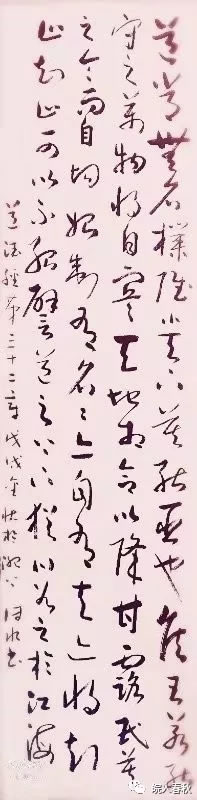 道常無名樸雖小天下莫能臣也侯王若能
守之萬物將自賓天地相合以降甘露民莫
之令而自均始制有名名亦既有夫亦將知
止知止可以不殆譬道之在天下猶川谷之於江海
道德經第三十二章 戊戌金秋於 書
皖人春秋